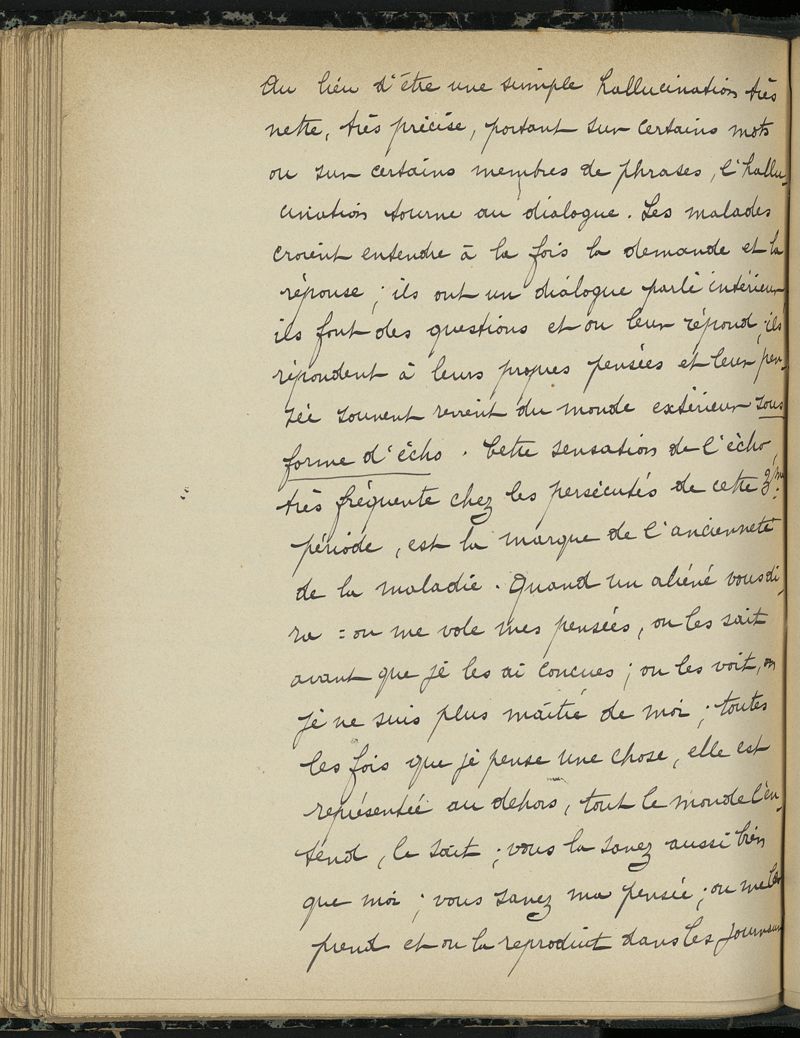 Au lieu d'être une simple hallucination très
nette, très précise, portant sur certains mots
ou sur certains membres de phrases, l'hallu-
cination tourne au dialogue. Les malades
croient entendre à la fois la demande et la
réponse ; ils ont un dialogue parlé intérieur,
ils font des questions et on leur répond ; ils
répondent à leurs propres pensées et leur pen-
sée souvent revient du monde extérieur sous
forme d'écho. Cette sensation de l'écho
très fréquente chez les persécutés de cette
période, est la marque de l'ancienneté
de la maladie. Quand un aliéné vous di-
ra = on me vole mes pensées, on les sait
avant que je les ai concues ; on les voit, on
je ne suis plus maître de moi ; toutes
les fois que je pense une chose, elle est
représentée au dehors, tout le monde l'en-
tend, le sait ; vous la savez aussi bien
que moi ; vous savez ma pensée ; on me la
prend et on la reproduit dans les journaux